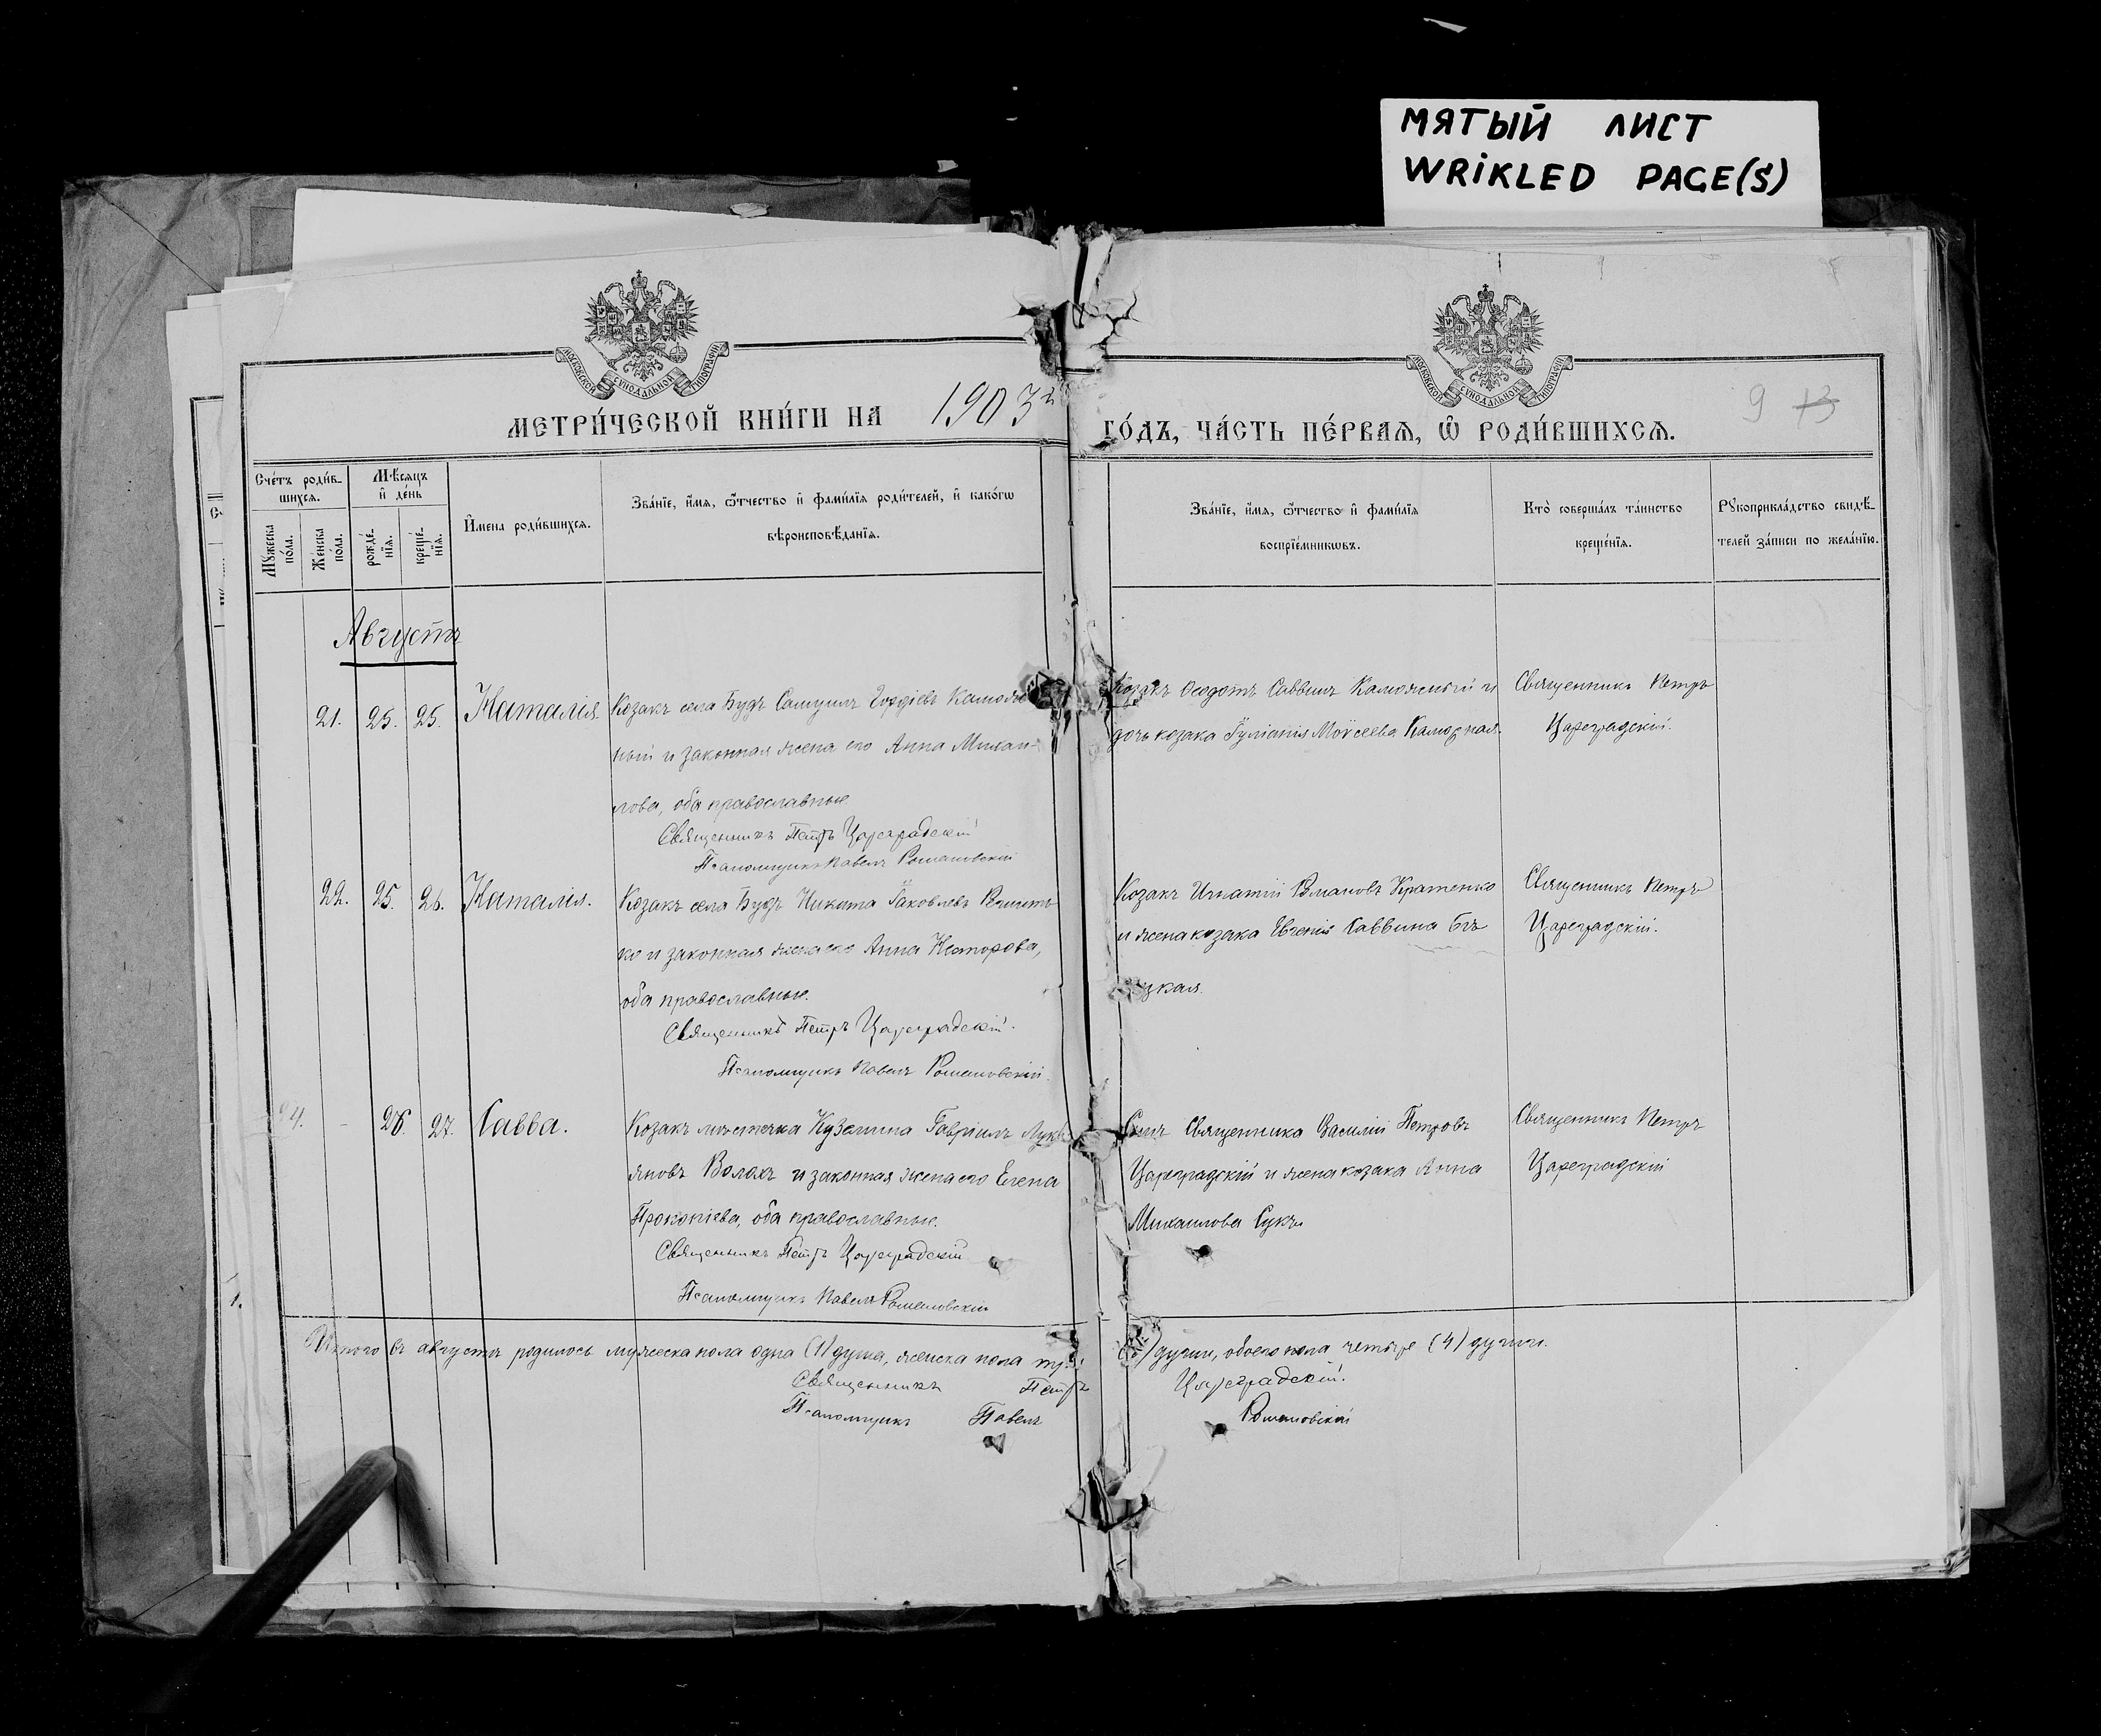 МЯТЫЙ ЛИСТ
WRIKLED PAGE(S)
МОСКОВСКОЙ СѴНОДАЛЬНОЙ ТИПОГРАФІИ
МОСКОВСКОЙ СѴНОДАЛЬНОЙ ТИПОГРАФІИ
МЕТРИ́ЧЕСКОЙ КНИ́ГИ НА 1903й
ГО́ДЪ, ЧА́СТЬ ПЕ́РВАЯ, Ѡ РОДИ́ВШИХСЯ.
9 13
Сче́тъ роди́в-
шихся.
Мꙋ́жеска по́ла.
Же́нска по́ла.
Мѣ́сяцъ
и де́нь
рожде́-
нїя.
креще́-
нїя.
И́мена роди́вшихся.
Зва́нїе, и́мя, ѻ́тчество и фами́лїя роди́телей, и како́гѡ
вѣроисповѣ́данїя.
Зва́нїе, и́мя, ѻ́тчество и фами́лїя
воспрїе́мникѡвъ.
Кто̀ соверша́лъ та́инство
креще́нїя.
Рꙋкоприкла́дство свидѣ́-
телей за́писи по жела́нїю.
Августъ
21. 25. 25. Наталія. Козакъ села Будъ Самуилъ Гордіевъ
ный и законная жена его Анна Михаи-
лова, оба православные.
Священникъ Петръ Цареградскій
Псаломщикъ Павелъ Романовскій
Козакъ Ѳеодотъ Саввинъ и
дочь козака Іуліанія Моѵсеева
Священникъ Петръ
Цареградскій.
22. 25. 26. Наталія. Козакъ села Будъ Никита Іаковлевъ
ко и законная жена его Анна Несторова,
оба православные.
Священникъ Петръ Цареградскій.
Псаломщикъ Павелъ Романовскій.
Козакъ Игнатій Романовъ Кратенко
и жена козака Евгенія Саввина
Священникъ Петръ
Цареградскій.
4. - 26. 27. Савва. Козакъ мѣстечка Куземина Гавріилъ Лукі-
яновъ Волохъ и законная жена его Елена
Прокопіева, оба православные.
Священникъ Петръ Цареградскій
Псаломщикъ Павелъ Романовскій
Сынъ Священника Василій Петровъ
Цареградскій и жена козака Анна
Михаилова
Священникъ Петръ
Цареградскій
1.
Итого въ августѣ родилось мужеска пола одна (1) душа, женска пола три (3) души, обоего пола четыре (4) души.
Священникъ Петръ Цареградскій.
Псаломщикъ Павелъ Романовскій